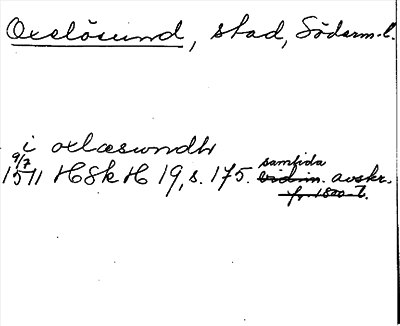 Oxelösund, stad, Söderm. l.
i oxlæswndh
9/7
1511 HSkH 19, s. 175. samtida avskr.